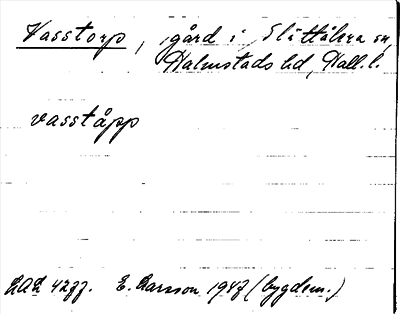 Vasstorp, gård i Slättåkra sn,
Halmstads hd, Hall. l.
vasståpp
LAL 4277. E. Larsson 1947 (bygdem.)